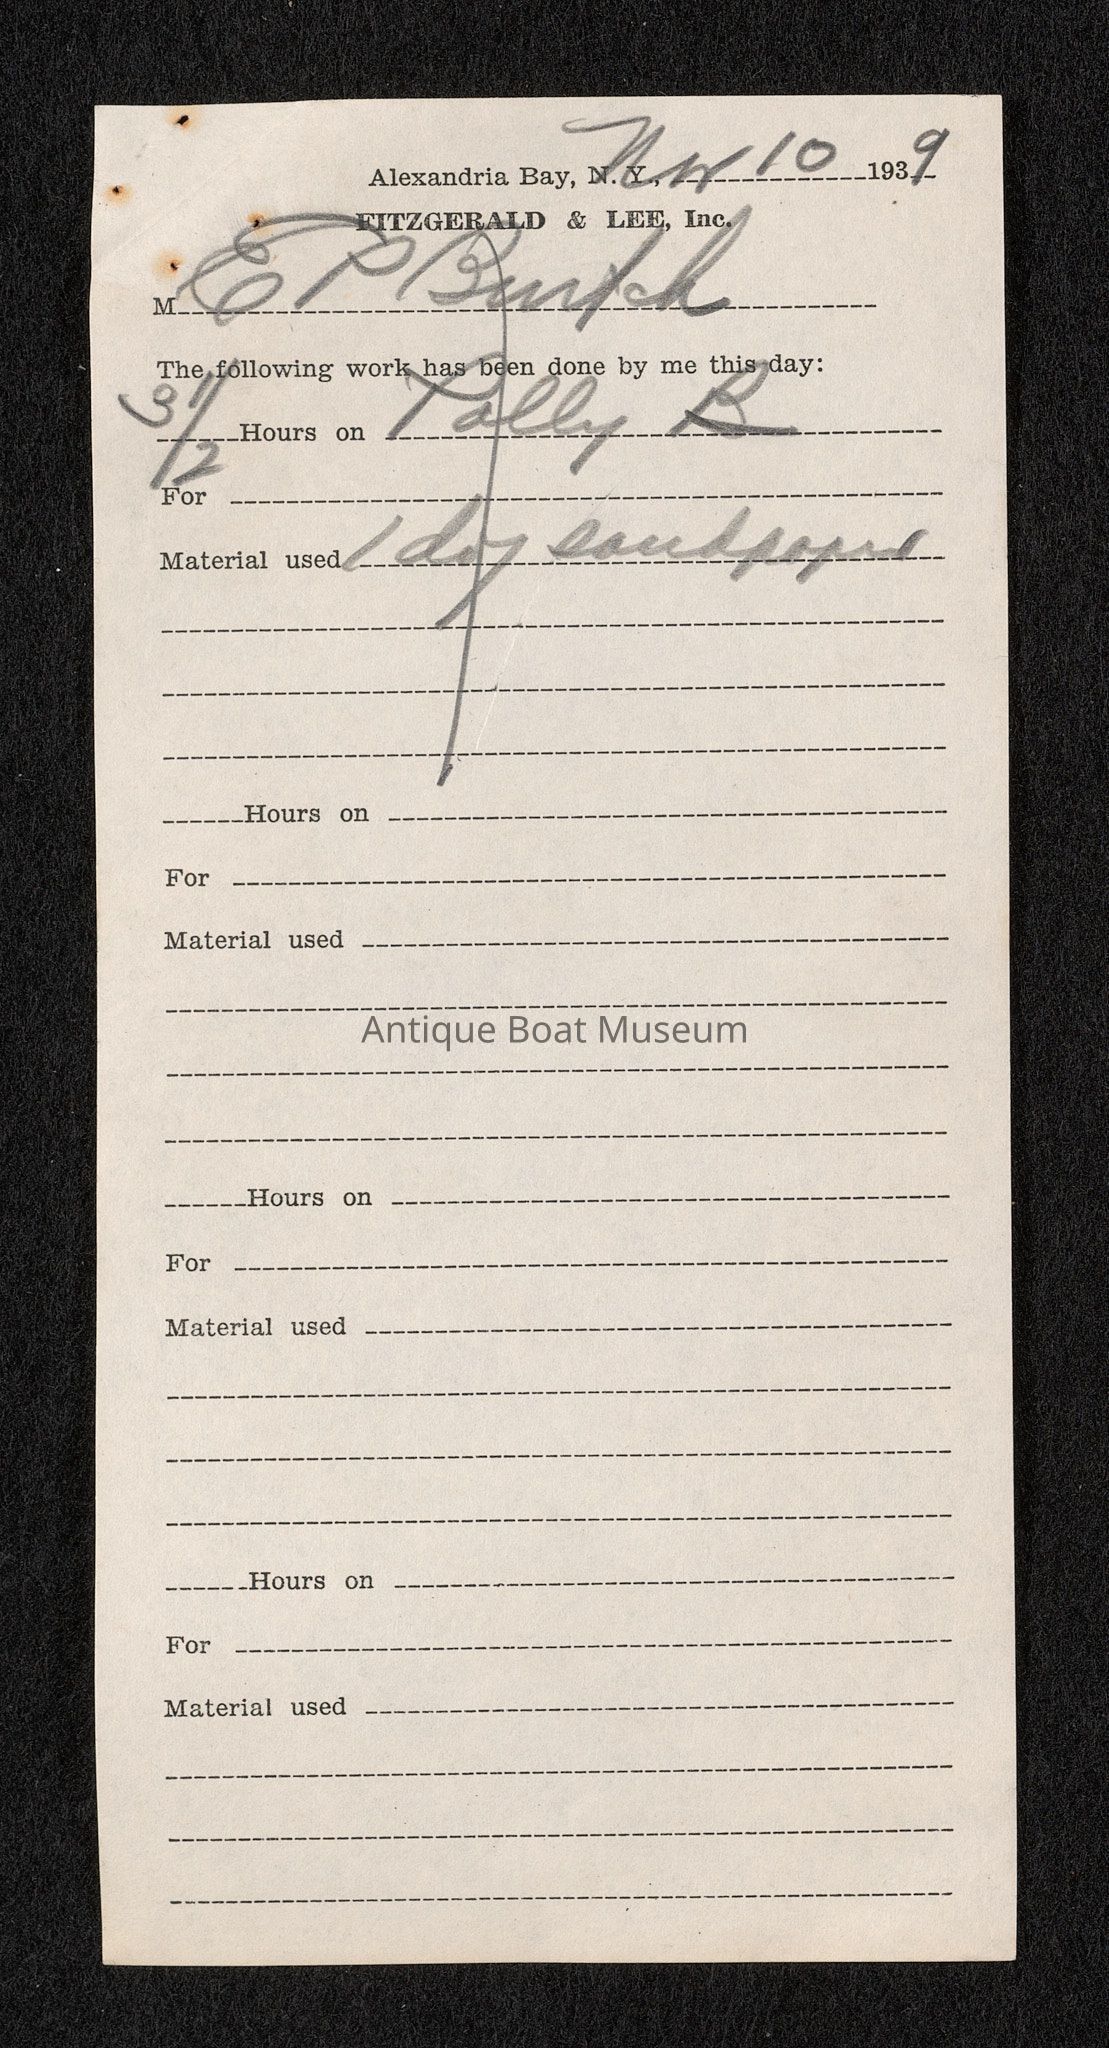 Alexandria Bay, N. Y., Nov 10 1939
FITZGERALD & LEE, Inc.
M E P Burtch
The following work has been done by me this day:
3 1/2 Hours on Polly B
For
Material used 1 doz sandpaper
Hours on
For
Material used
Antique Boat Museum
Hours on
For
Material used
Hours on
For
Material used